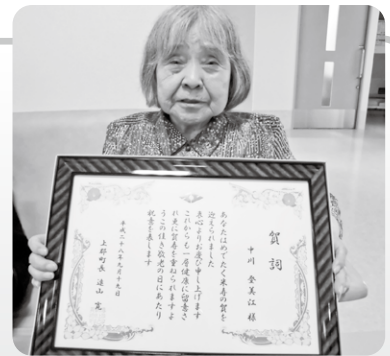 賀詞
中川 金萬江 様
あなたはめでたく米寿の賀を
迎えられました
衷心よりお慶び申し上げます
これからも一層健康に留意さ
れ更に賀寿を重ねられますよ
うこの佳き敬老の日にあたり
祝意を表します
平成二十八年九月十九日
上郡町長 遠山 寛